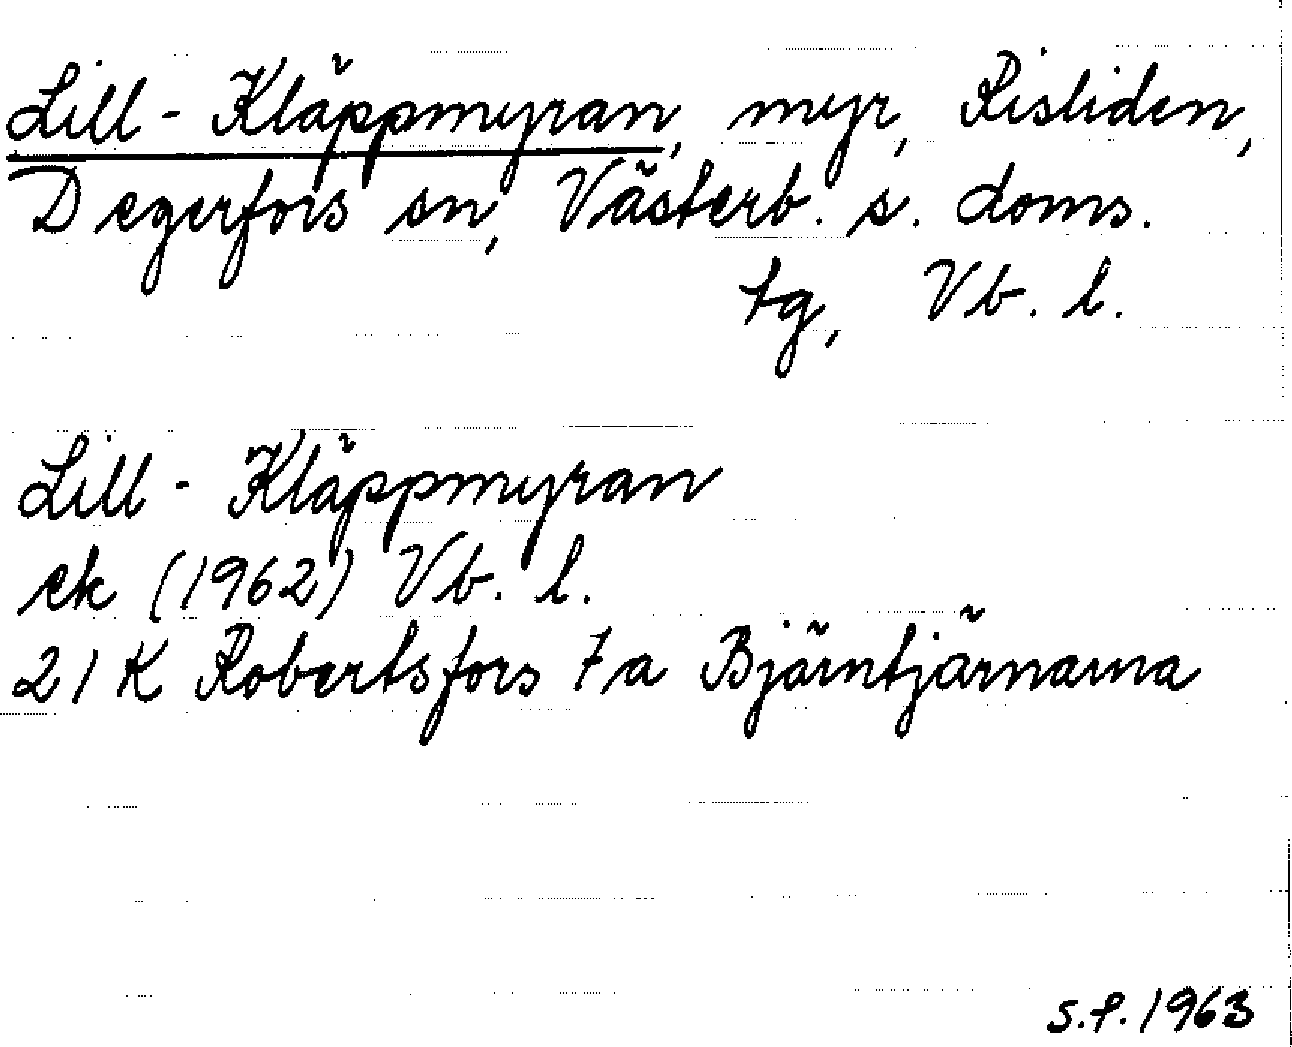 Lill-Kläppmyran, myr, Risliden,
Degerfors sn, Västerb. s. doms.
tg, Vb. l.
Lill-Kläppmyran
ek (1962) Vb. l.
21K Robertsfors 7a Bjärntjärnarna
s.f. 1963